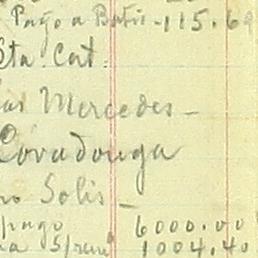 Pago a Batis - 115.69
Sta. Cat.
Mercedes -
Covadonga
Solis -
pago 6000.00
1004.40